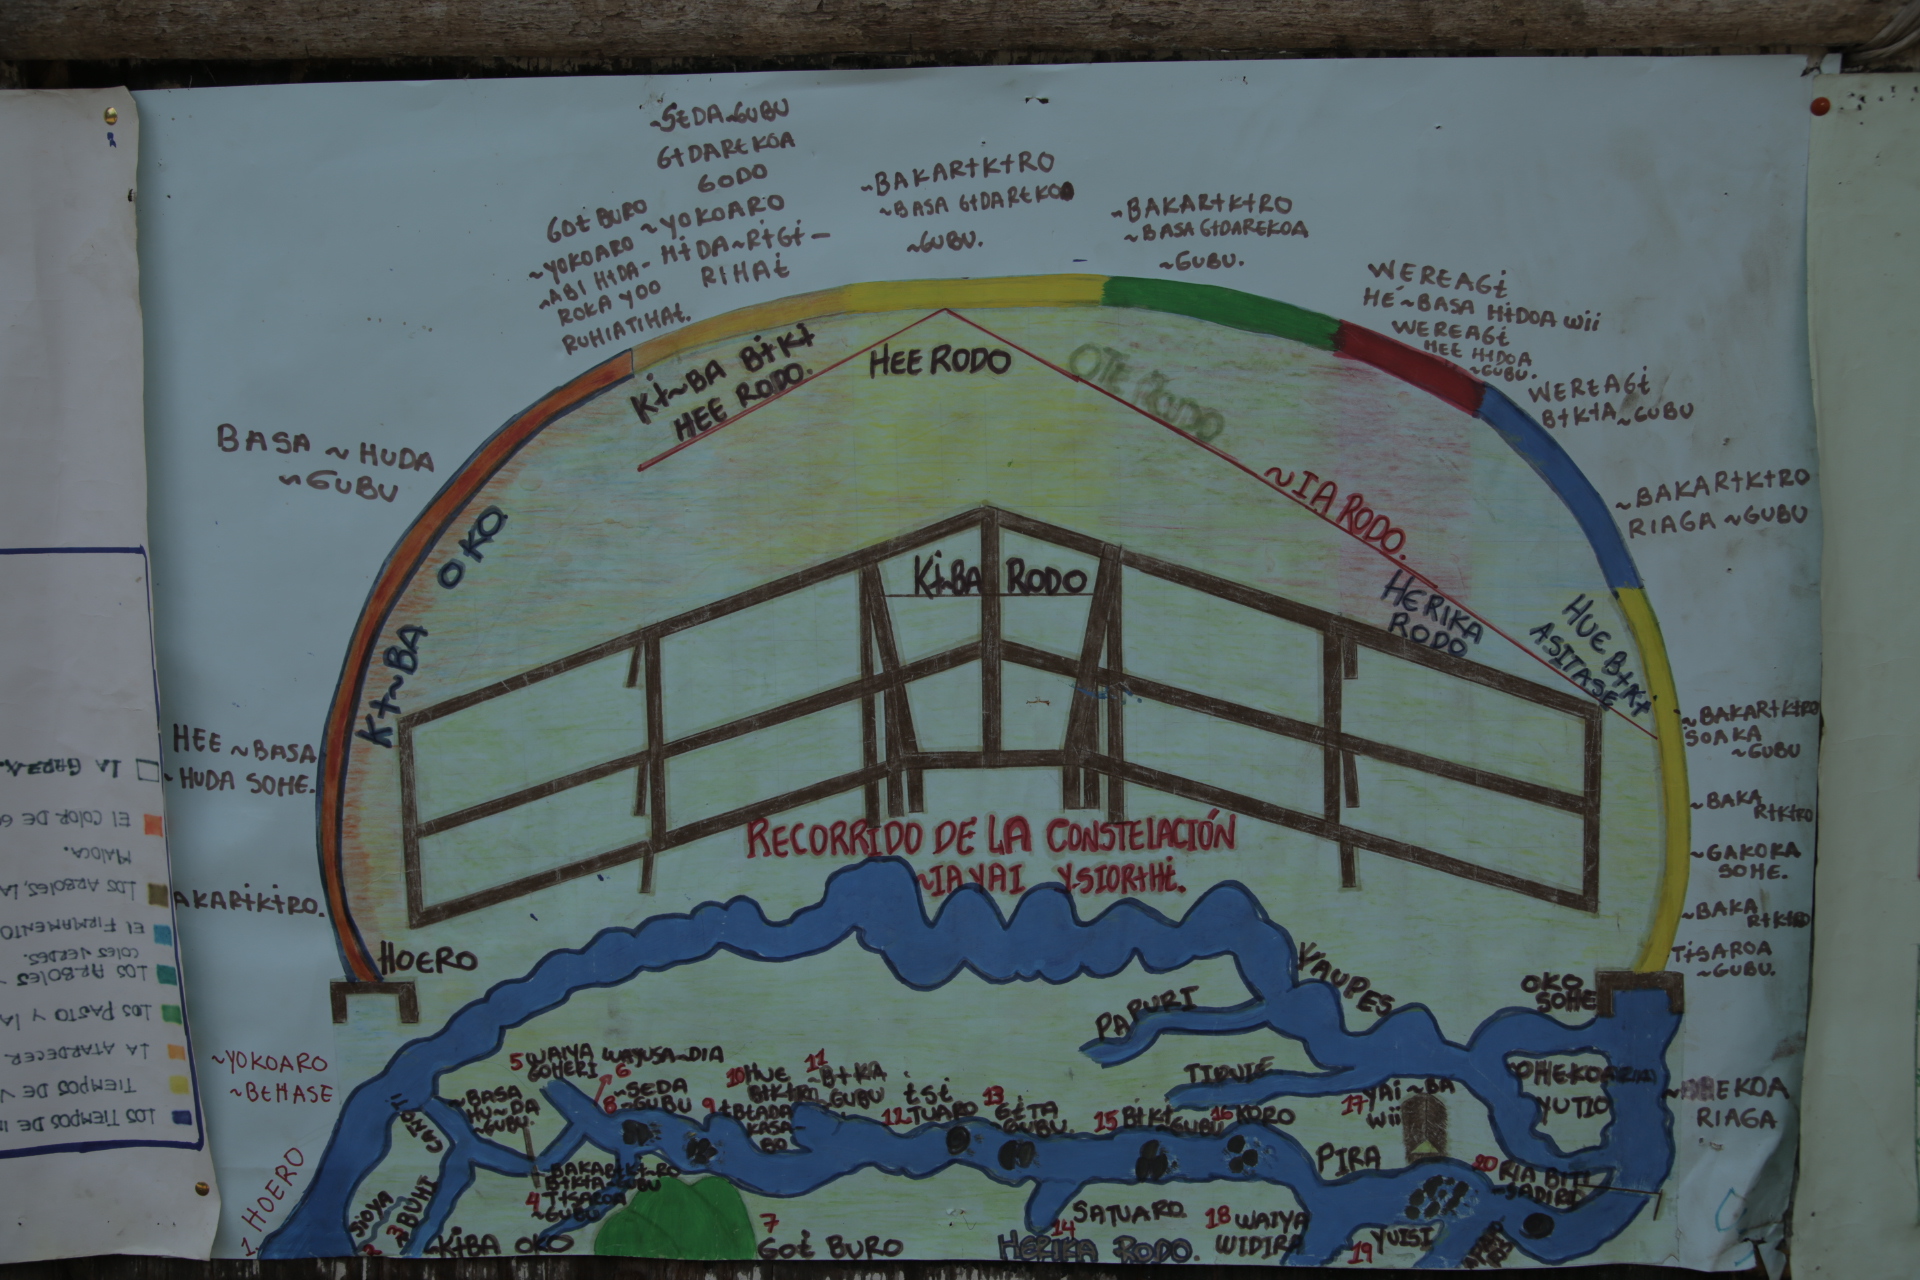 ~SEDA~GUBU
GɨDAREKOA
GODO
~YOKOARO
HɨDA~RɨGɨ-
RIHAɨ
GOɨ BURO
~YOKOARO
~ABI HɨDA-
ROKA YOO
RUHIATIHAɨ.
~BAKARɨKɨRO
~BASA GɨDAREKOA
~GUBU.
~BAKARɨKɨRO
~BASA GɨDAREKOA
~GUBU.
WEREAGɨ
HE~BASA HɨDOA Wii
WEREAGɨ
HEE HɨDOA
~GUBU.
WEREAGɨ
BɨKɨA~GUBU
~BAKARɨKɨRO
RIAGA ~GUBU
BASA ~HUDA
~GUBU
Kɨ~BA BɨKɨ
HEE RODO.
HEE RODO
OTE RODO
~IA RODO.
HERIKA
RODO
HUE BɨKɨ
ASITASE
Kɨ~BA OKO
KɨBA RODO
~BAKARɨKɨRO
SOAKA
~GUBU
~BAKA
RɨKɨRO
~GAKOKA
SOHE.
~BAKA
RɨKɨRO
TɨSAROA
~GUBU.
HEE ~BASA
~HUDA SOHE.
AKARɨKɨRO.
RECORRIDO DE LA CONSTELACIÓN
~IAYAI YSIORɨHɨ.
HOERO
VAUPES
PAPURI
TIQUIE
OKO
SOHE
OHEKOA
YUTIO
EKOA
RIAGA
~YOKOARO
~BEHASE
1. HOERO
2 SIOYA
3 ~BUHI
CAÑO
~BASA
HU~DA
~GUBU.
~BAKARɨKɨ~RO
BɨKɨA~GUBU
4 TɨSAROA
~GUBU
5 WAIYA
GOHERI
WAYUSA~DIA
6
8 ~SEDA
~GUBU
7
GOɨ BURO
KɨBA OKO
10 HUE
BɨKɨRO
11
~BɨKA
~GUBU
12 TUARO
13
GɨTA
GUBU.
14
SATUARO
HERIKA RODO.
15 BɨKɨ
GUBU
16 KORO
17 YAI~BA
Wii
PIRA
18 WAIYA
WIDIRA
19 YUISI
20 RIA
LA GARZA.
El COLOR DE
MALOCA.
LOS ARBOLES, LA
El FIRMAMENTO
COLES VERDES.
LOS ARBOLES
LOS PASTO Y LA
LA ATARDECER
TIEMPOS DE V
LOS TIEMPOS DE I